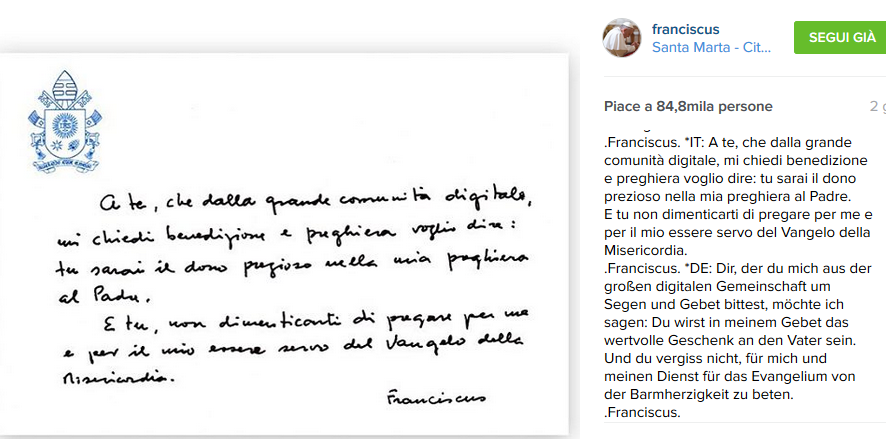 A te, che dalla grande comunità digitale,
mi chiedi benedizione e preghiera voglio dire:
tu sarai il dono prezioso nella mia preghiera
al Padre.
E tu, non dimenticarti di pregare per me
e per il mio essere servo del Vangelo della
Misericordia.
Franciscus
franciscus
Santa Marta - Cit...
SEGUI GIÀ
Piace a 84,8mila persone
2 g
.Franciscus. *IT: A te, che dalla grande
comunità digitale, mi chiedi benedizione
e preghiera voglio dire: tu sarai il dono
prezioso nella mia preghiera al Padre.
E tu non dimenticarti di pregare per me e
per il mio essere servo del Vangelo della
Misericordia.
.Franciscus. *DE: Dir, der du mich aus der
großen digitalen Gemeinschaft um
Segen und Gebet bittest, möchte ich
sagen: Du wirst in meinem Gebet das
wertvolle Geschenk an den Vater sein.
Und du vergiss nicht, für mich und
meinen Dienst für das Evangelium von
der Barmherzigkeit zu beten.
.Franciscus.